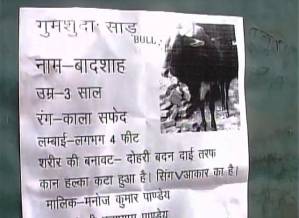 गुमशुदा साड़
BULL
नाम-बादशाह
उम्र-3 साल
रंग-काला सफेद
लम्बाई-लगभग 4 फीट
शरीर की बनावट- दोहरी बदन दाई तरफ
कान हल्का कटा हुआ है। सिंग V आकार का है।
मालिक-मनोज कुमार पाण्डेय